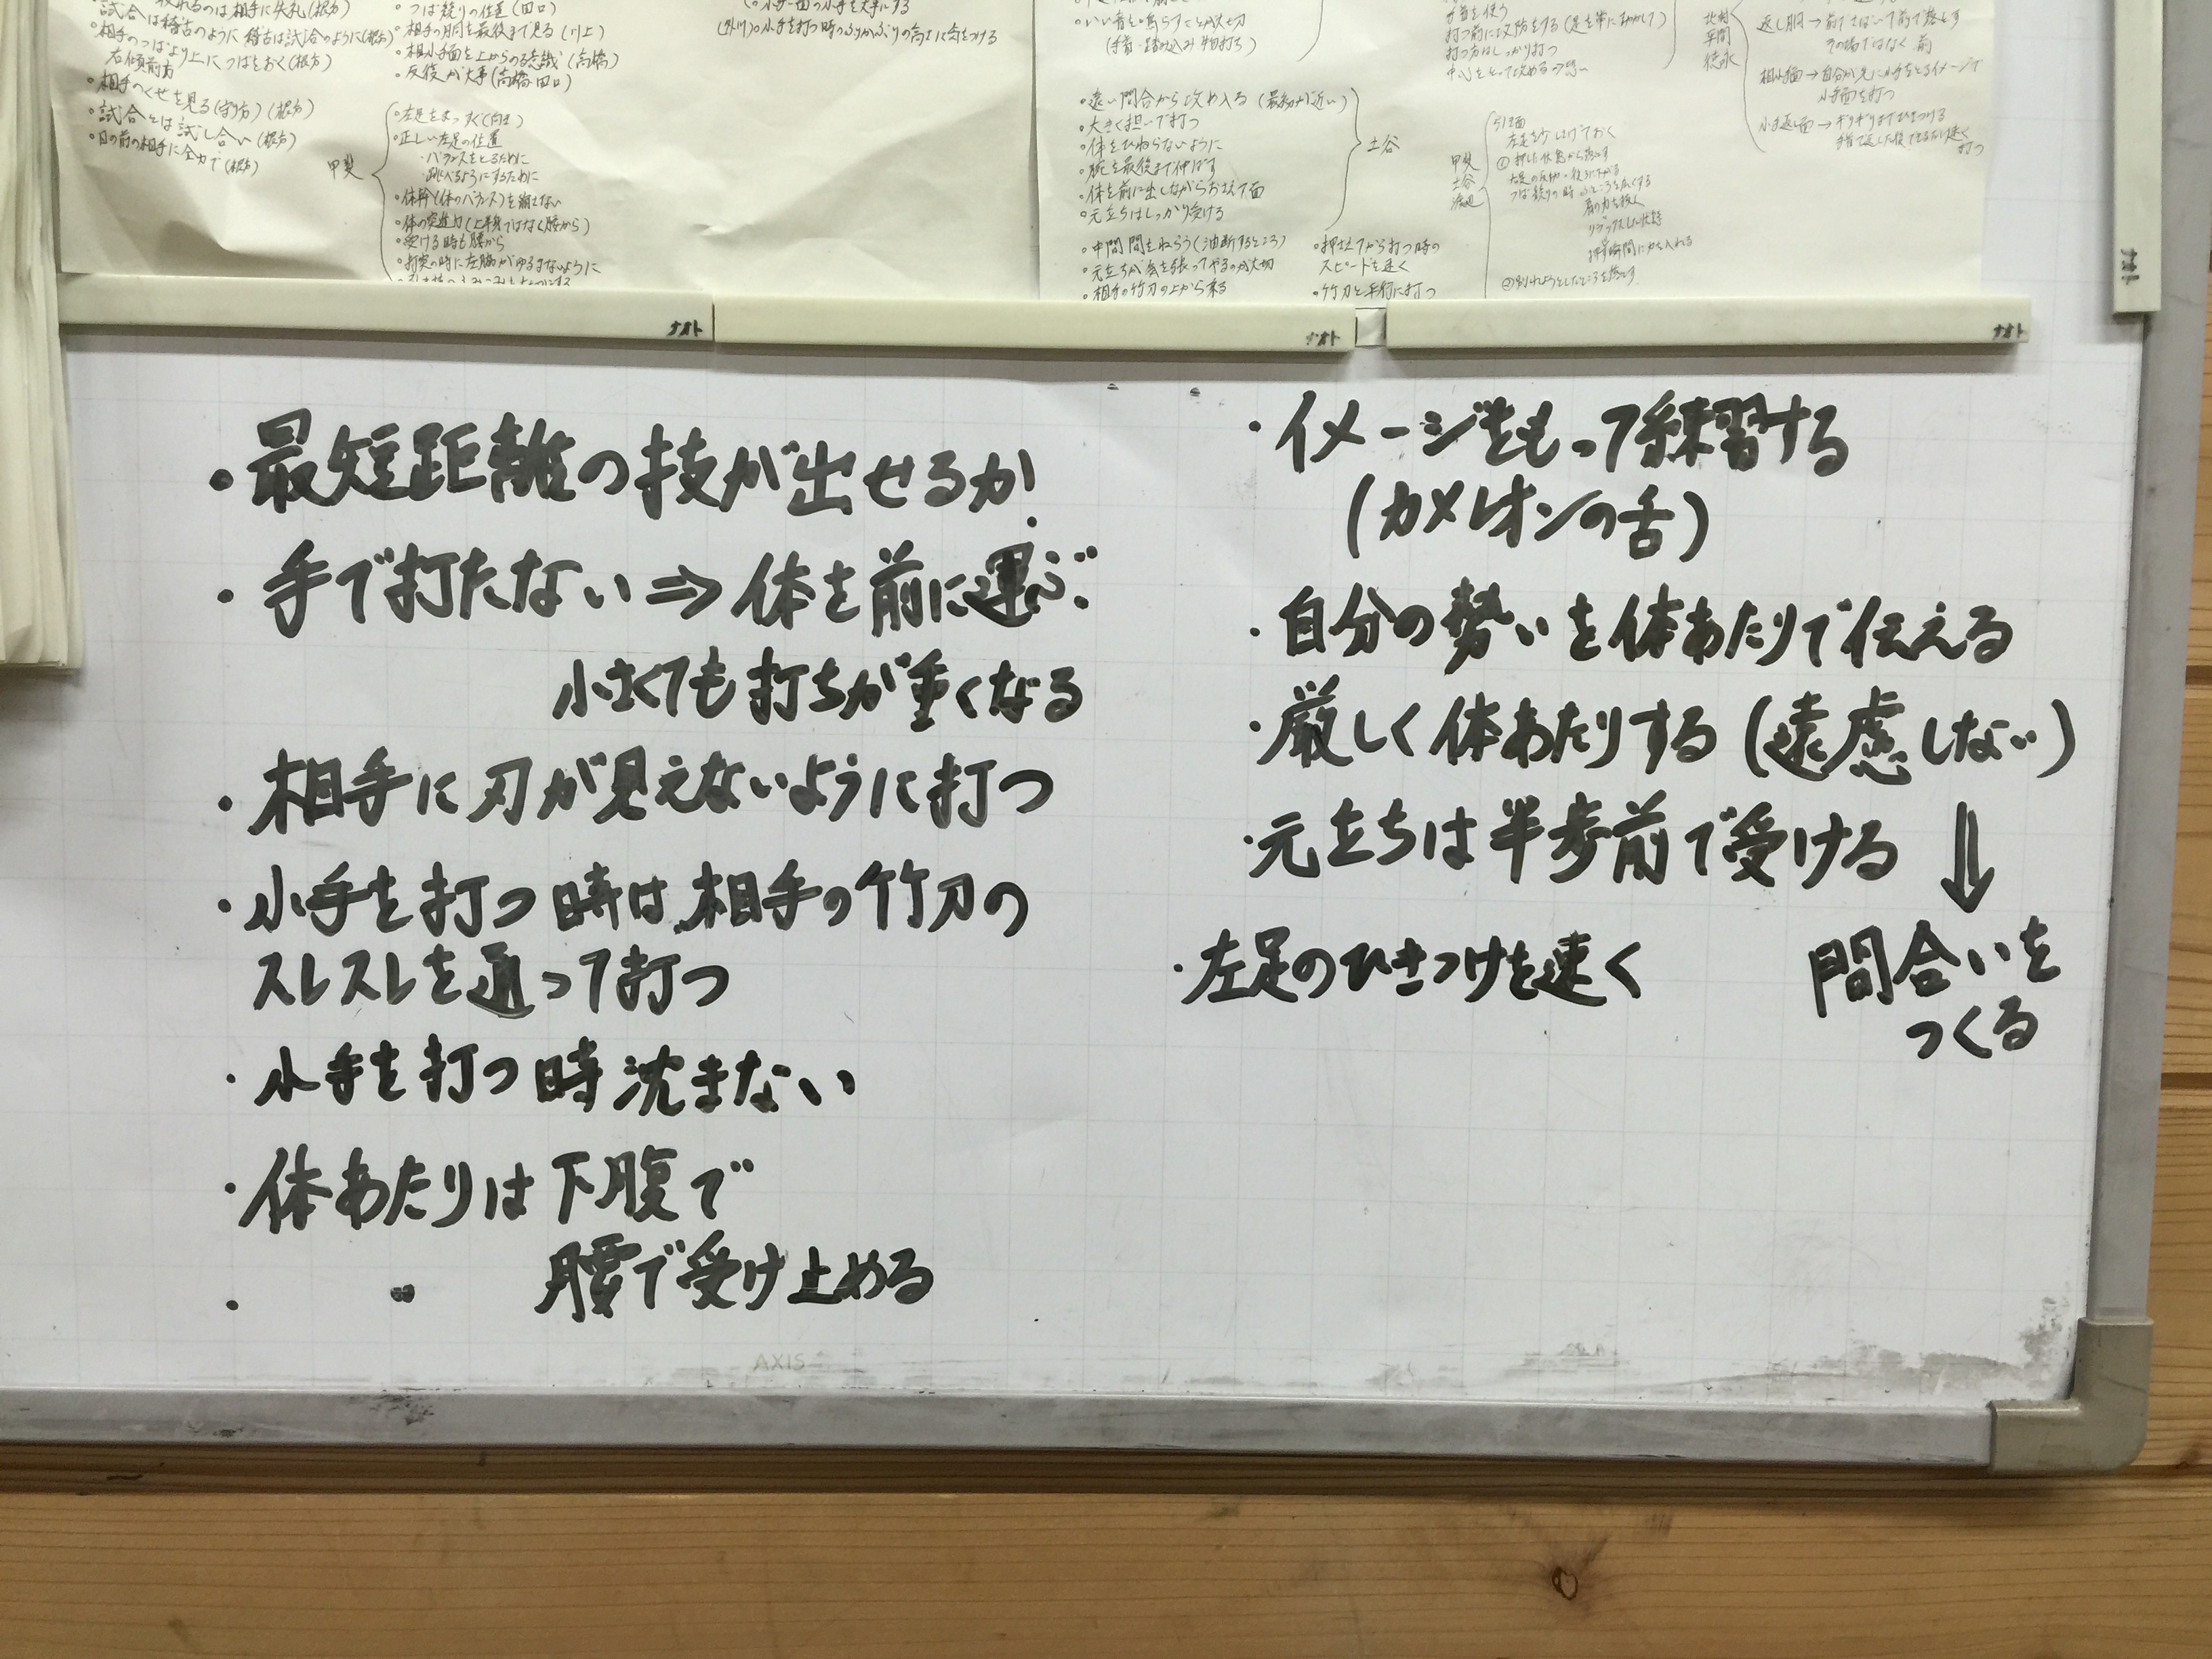 試合は稽古のように 稽古は試合のように(根方)
相手のつばより上につばをおく(根方)
右傾前方
・相手のくせを見る(守り方)(根方)
・試合とは試し合い(根方)
・目の前の相手に全力で(根方)
・つば競りの位置(田口)
・相手の胴を最後まで見る(川上)
・相小手面を上からのる意識(高橋)
・反復が大事(高橋 田口)
甲斐
・左足をまっすぐ(向き)
・正しい左足の位置
・バランスをとるために
・跳べるようにするために
・体幹(体のバランス)を崩さない
・体の突進力(上半身ではなく腰から)
・受ける時も腰から
・打突の時に左脇がゆるまないように
・小手-面の小手を大事にする
小手を打つ時のふりかぶりの高さに気をつける
・いい音を鳴らすことが大切
(手首・踏み込み・物打ち)
・遠い間合から攻め入る(最初が近い)
・大きく担いで打つ
・体をひねらないように
・腕を最後まで伸ばす
・体を前に出しながらおさえて面
・元立ちはしっかり受ける
土谷
・中間間をねらう(油断するところ)
・元立ちが気を張ってやるのが大切
・相手の竹刀の上から乗る
・押さえてから打つ時の
スピードを速く
・竹刀と平行に打つ
手首を使う
打つ前に攻防をする(足を常に動かして)
打つ方はしっかり打つ
甲斐
土谷
渡辺
引き面
左足を少しはげておく
つば競りの時 ふところを広くする
肩の力を抜く
リラックスした状態
押す瞬間に力を入れる
北村
草間
徳永
返し胴→前でさばいて前で落とす
その場ではなく 前
相小手面→自分が先に小手をとるイメージで
小手面を打つ
小手返し面→ギリギリまでひきつける
手首で返した後できるだけ速く
打つ
ナオト
ナオト
ナオト
ナオト
・最短距離の技が出せるか
・手で打たない⇒体を前に運ぶ
小さくても打ちが重くなる
・相手に刃が見えないように打つ
・小手を打つ時は、相手の竹刀の
スレスレを通って打つ
・小手を打つ時沈まない
・体あたりは下腹で
・〃 腰で受け止める
・イメージをもって練習する
(カメレオンの舌)
・自分の勢いを体あたりで伝える
・厳しく体あたりする(遠慮しない)
・元立ちは半歩前で受ける
⇓
間合いを
つくる
・左足のひきつけを速く
AXIS